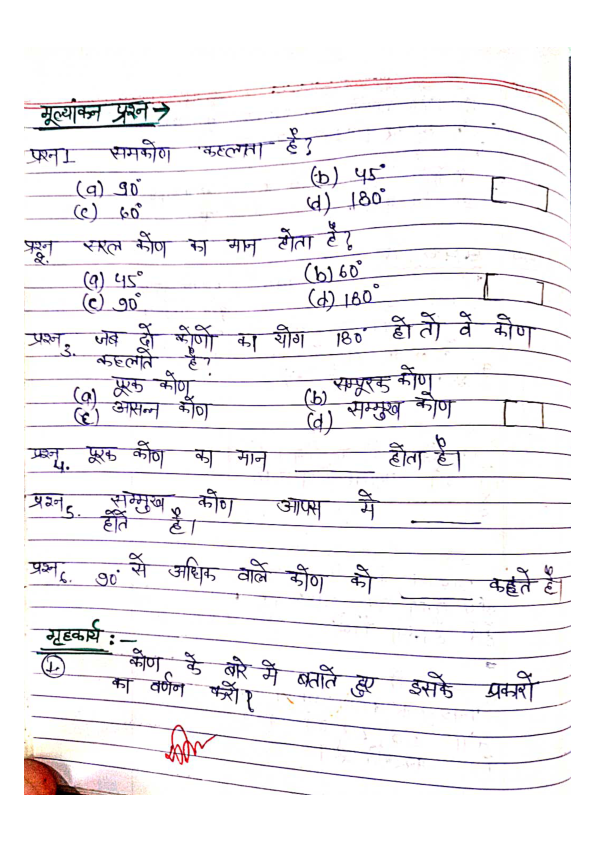 मूल्यांकन प्रश्न →
प्रश्न 1 समकोण कहलाता है?
(a) 90° (b) 45°
(c) 60° (d) 180°
प्रश्न 2. सरल कोण का मान होता है?
(a) 45° (b) 60°
(c) 90° (d) 180°
प्रश्न 3. जब दो कोणों का योग 180° हो तो वे कोण
कहलाते है?
(a) पूरक कोण (b) सम्पूरक कोण
(c) आसन्न कोण (d) सम्मुख कोण
प्रश्न 4. पूरक कोण का मान ______ होता है।
प्रश्न 5. सम्मुख कोण आपस में ______
होते है।
प्रश्न 6. 90° से अधिक वाले कोण को ______ कहते है।
गृहकार्य :-
1. कोण के बारे में बताते हुए इसके प्रकारो
का वर्णन करो?